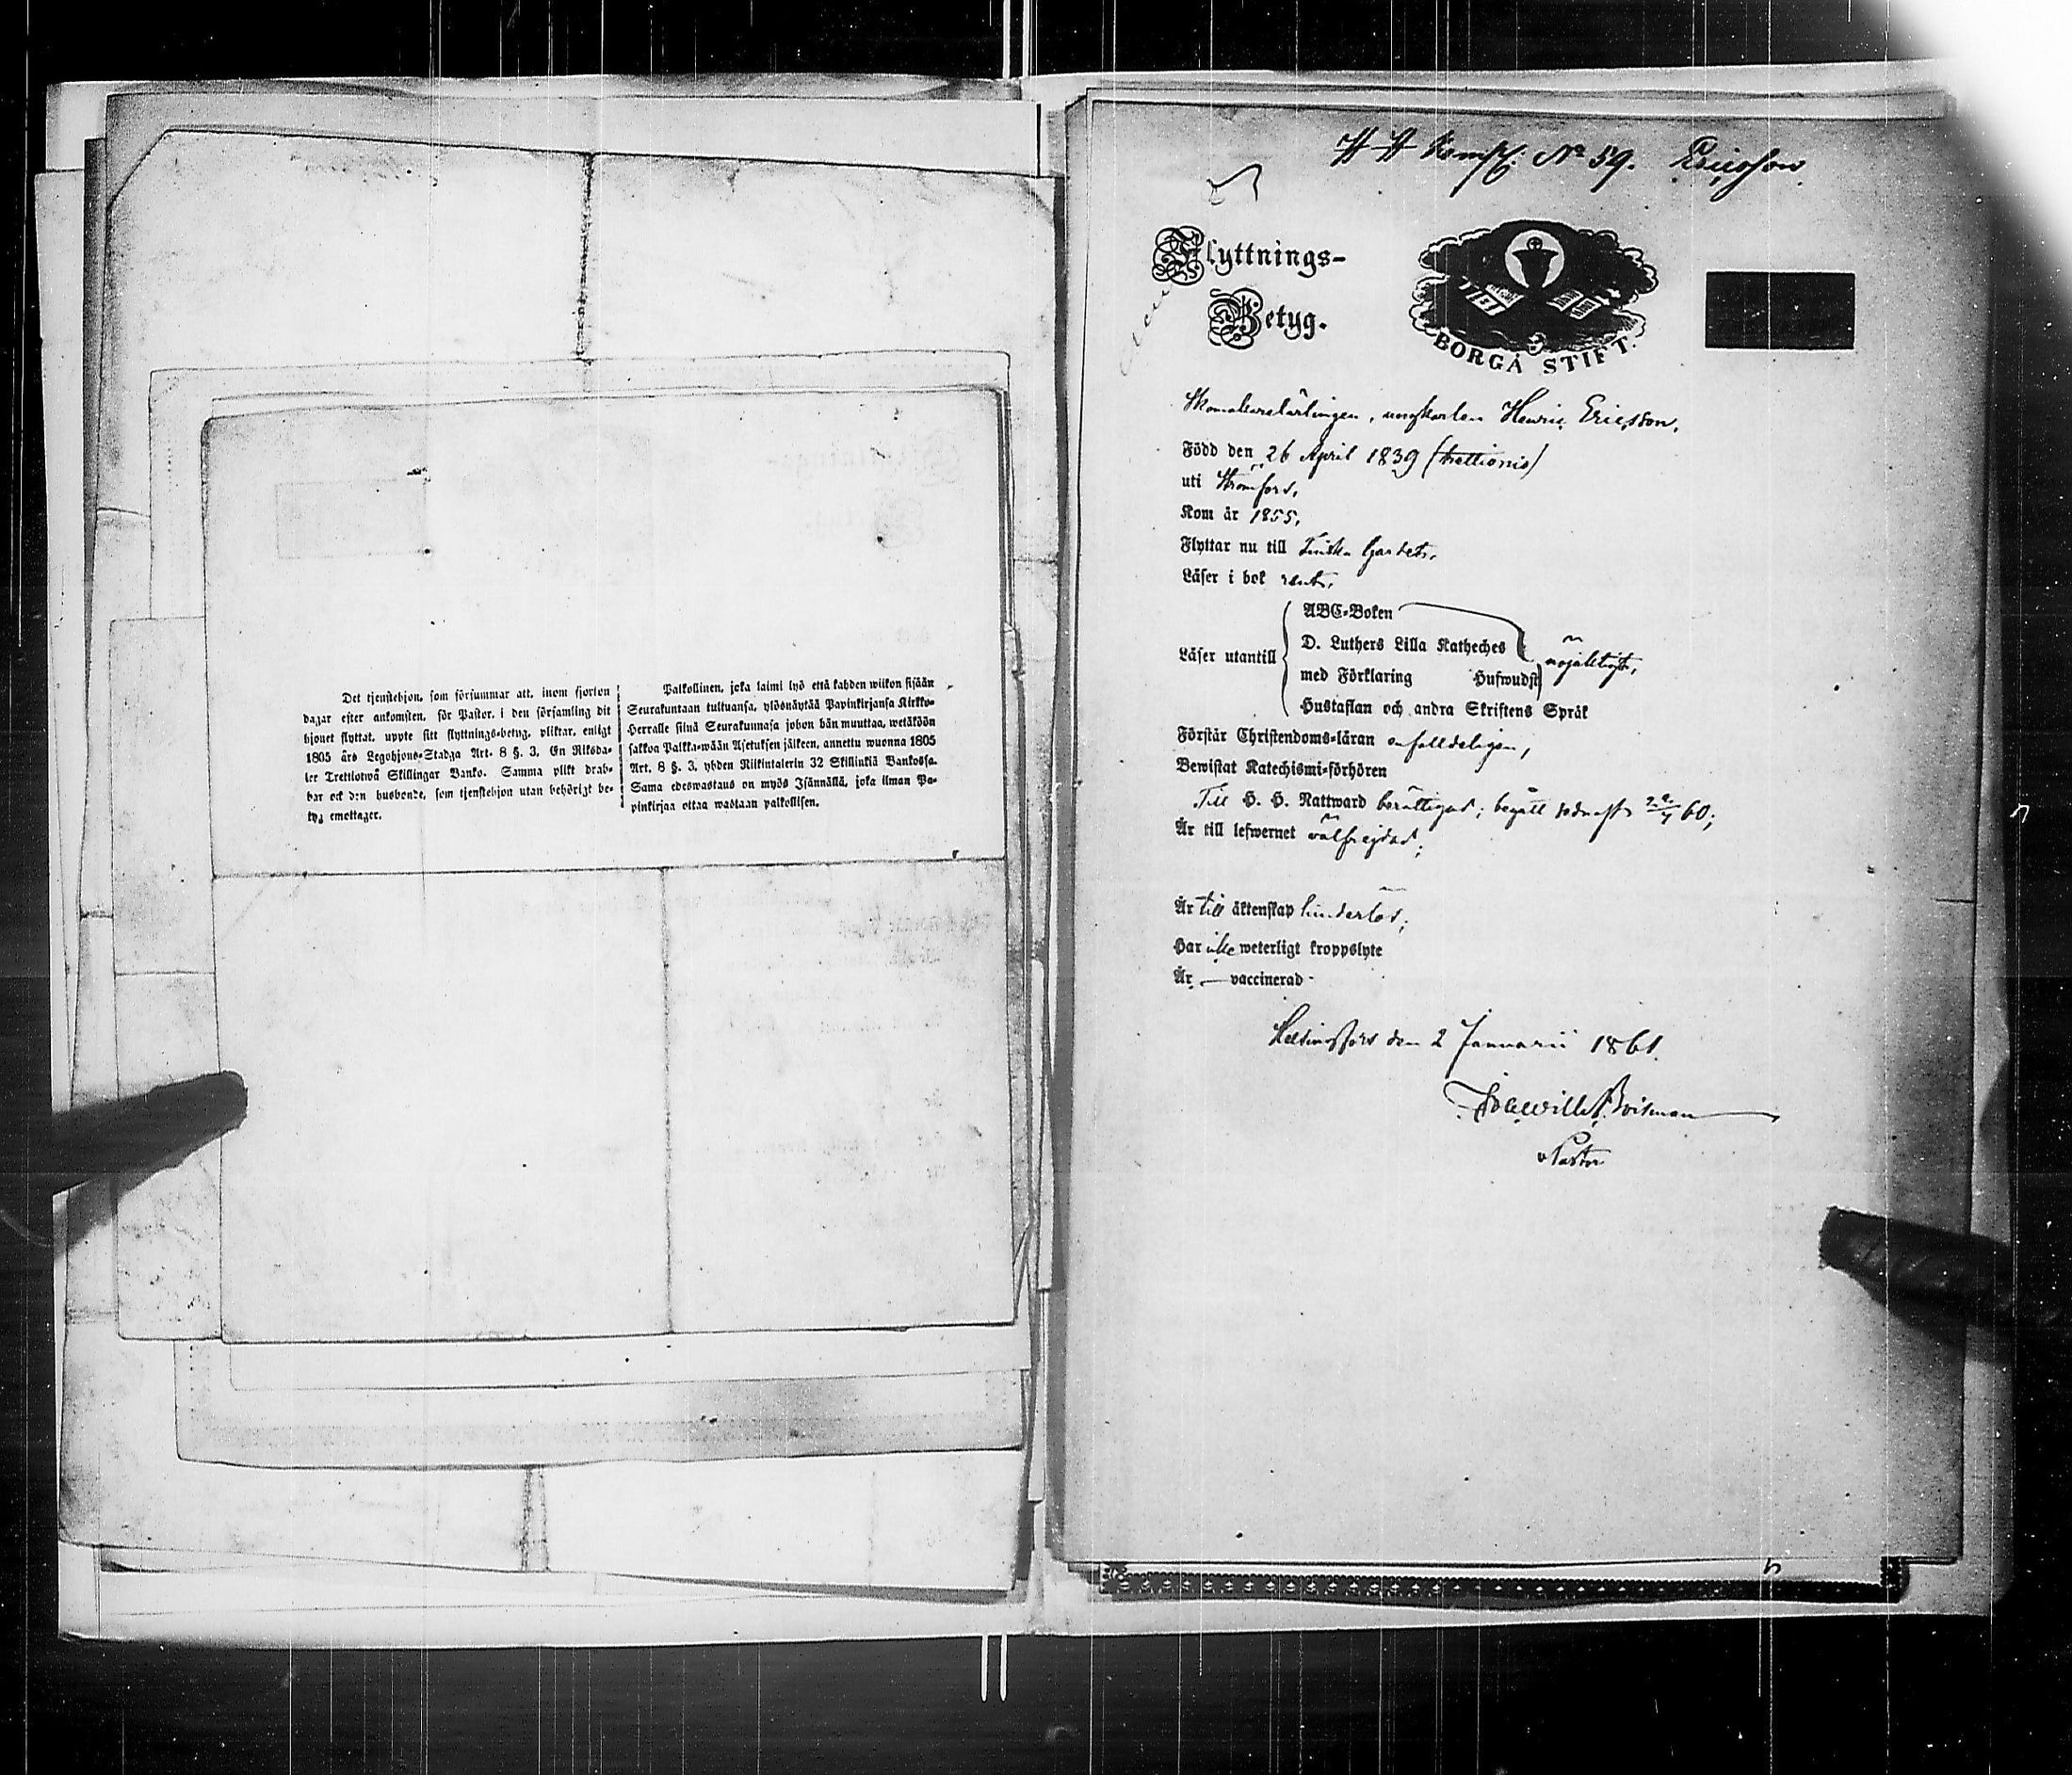 Det tjenstehjon, som försummar att, inom fjorton
dagar efter ankomsten, för Pastor, i den församling dit
hjonet flyttat, uppte sitt flyttnings-betyg, pliktar, enligt
1805 års Legohjons-Stadga Art. 8 §. 3, En Riksda-
ler Trettiotwå Skillingar Banko. Samma plikt drab-
bar ock den husbonde, som tjenstehjon utan behörigt be-
tyg emottager.
Palkollinen, joka laimi lyö että kahden wiikon sisään
Seurakuntaan tultuansa, ylösnäytää Papinkirjansa Kirkko-
Herralle siinä Seurakunnasa johon hän muuttaa, wetäköön
sakkoa Palkka-wään Asetuksen jälkeen, annettu wuonna 1805
Art. 8 §. 3, yhden Riikintalerin 32 Skillinkiä Bankossa.
Sama edeswastaus on myös Isännällä, joka ilman Pa-
pinkirjaa ottaa wastaan palkollisen.
N° 59. Ericsson
Flyttnings-
Betyg.
BORGÅ STIFT.
Skomakarelärlingen, ungkarlen Henric Ericsson,
Född den 26 April 1839 (trettionio)
uti Strömfors,
Kom år 1855,
Flyttar nu till Finska Gardet,
Läser i bok rent,
Läser utantill
ABC-Boken
D. Luthers Lilla Katheches
med Förklaring Hufwudst
nöjaktigt,
Hustaflan och andra Skriftens Språk
Förstår Christendoms-läran enfalldeligen,
Bewistat Katechismi-förhören
Till H. H. Nattward berättigad; begått sednast 60;
Är till lefwernet välfrejdad;
Är till äktenskap hinderlös;
Har icke weterligt kroppslyte
Är — vaccinerad
Helsingfors den 2 Januarii 1861.
Pastor